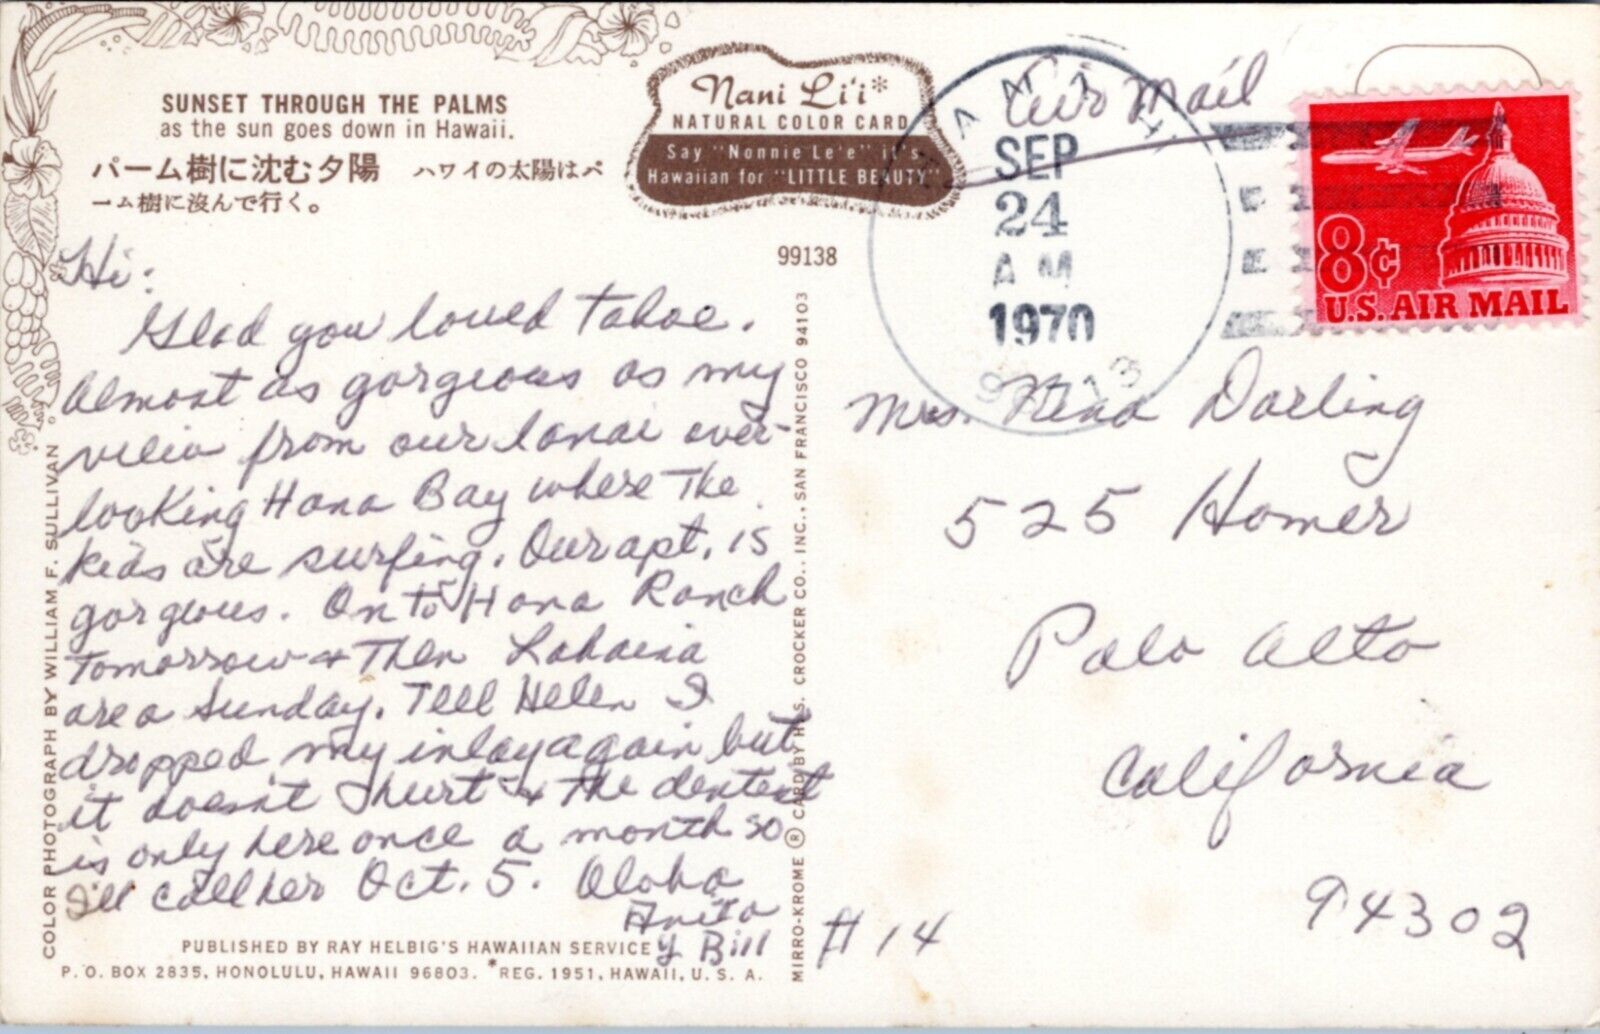 SUNSET THROUGH THE PALMS
as the sun goes down in Hawaii.
パーム樹に沈む夕陽 ハワイの太陽はパ
ーム樹に沒んで行く。
Nani Li'i*
NATURAL COLOR CARD
Say "Nonnie Le'e" it's
Hawaiian for "LITTLE BEAUTY"
99138
Hi:
Glad you loved Tahoe.
Almost as gorgeous as my
view from our lanai over-
looking Hana Bay where the
kids are surfing. Our apt. is
gorgeous. On to Hana Ranch
Tomorrow & Then Lahaina
area Sunday. Tell Helen I
dropped my inlay again but
it doesn't hurt & the dentist
is only here once a month so
I'll call her Oct. 5. Aloha
Anita
y Bill
#14
COLOR PHOTOGRAPH BY WILLIAM F. SULLIVAN
PUBLISHED BY RAY HELBIG'S HAWAIIAN SERVICE
P. O. BOX 2835, HONOLULU, HAWAII 96803. *REG. 1951, HAWAII, U. S. A.
MIRRO-KROME ® CARD BY H. S. CROCKER CO., INC., SAN FRANCISCO 94103
Air Mail
SEP
24
AM
1970
8¢
U.S. AIR MAIL
Mrs. Nena Darling
525 Homer
Palo Alto
California
94302